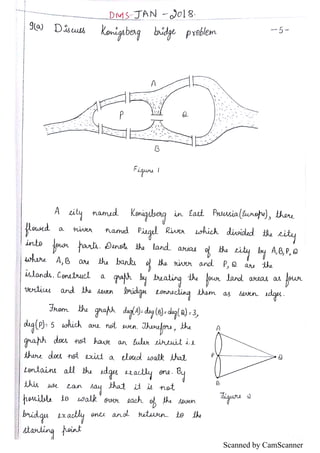 DMS JAN - 2018
9(a) Discuss Konigsberg bridge problem
-5-
A
P
Q
B
Figure 1
A city named Konigsberg in East Prussia (Europe), there
flowed a river named Pregel River which divided the city
into four parts. Denote the land areas of the city by A,B,P,Q
where A,B are the banks of the river and P,Q are the
islands. Construct a graph by treating the four land areas as four
vertices and the seven bridges connecting them as seven edges.
From the graph deg(A)=deg(B)=deg(Q)=3,
deg(P)=5 which are not even. Therefore, the
graph does not have an Euler circuit i.e
there does not exist a closed walk that
contains all the edges exactly one. By
this we can say that it is not
possible to walk over each of the seven
bridges exactly once and return to the
starting point
A
P
Q
B
Figure
Scanned by CamScanner